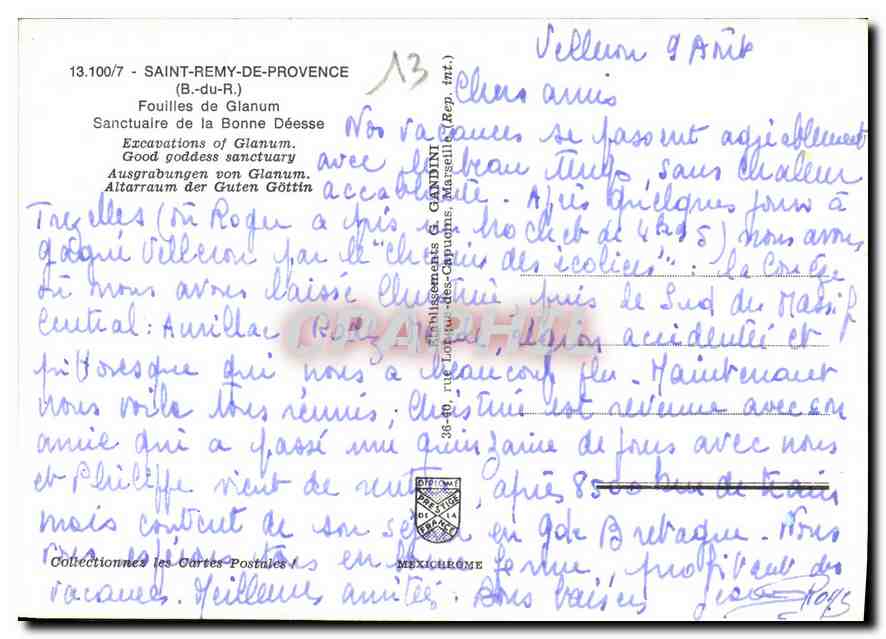 13.100/7 - SAINT-REMY-DE-PROVENCE
(B.-du-R.)
Fouilles de Glanum
Sanctuaire de la Bonne Déesse
Excavations of Glanum.
Good goddess sanctuary
Ausgrabungen von Glanum.
Altarraum der Guten Göttin
13
Etablissements G. GANDINI
36-40, rue Longue-des-Capucins, Marseille (Rep. int.)
Velleron 9 Août
Chers amis
Nos vacances se passent agréablement
avec beau temps, sans chaleur
accablante. Après quelques jours à
Trezelles (où Roger a pris un brochet de 4) nous avons
gagné Velleron par le "chemin des écoliers" : la
où nous avons laissé Christine puis le Sud du Massif
Central : Aurillac, région accidentée et
pittoresque qui nous a beaucoup plu. Maintenant
nous voilà tous réunis, Christine est revenue avec son
amie qui a passé une quinzaine de jours avec nous
et Philippe vient de rentrer, après 8500 km de train
mais content de son séjour en Gde Bretagne. Nous
vous espérons tous en forme, profitant des
vacances. Meilleures amitiés. Bons baisers
DIPLOME
PRESTIGE
DE LA
FRANCE
Collectionnez les Cartes Postales !
MEXICHROME
CPAPHIL